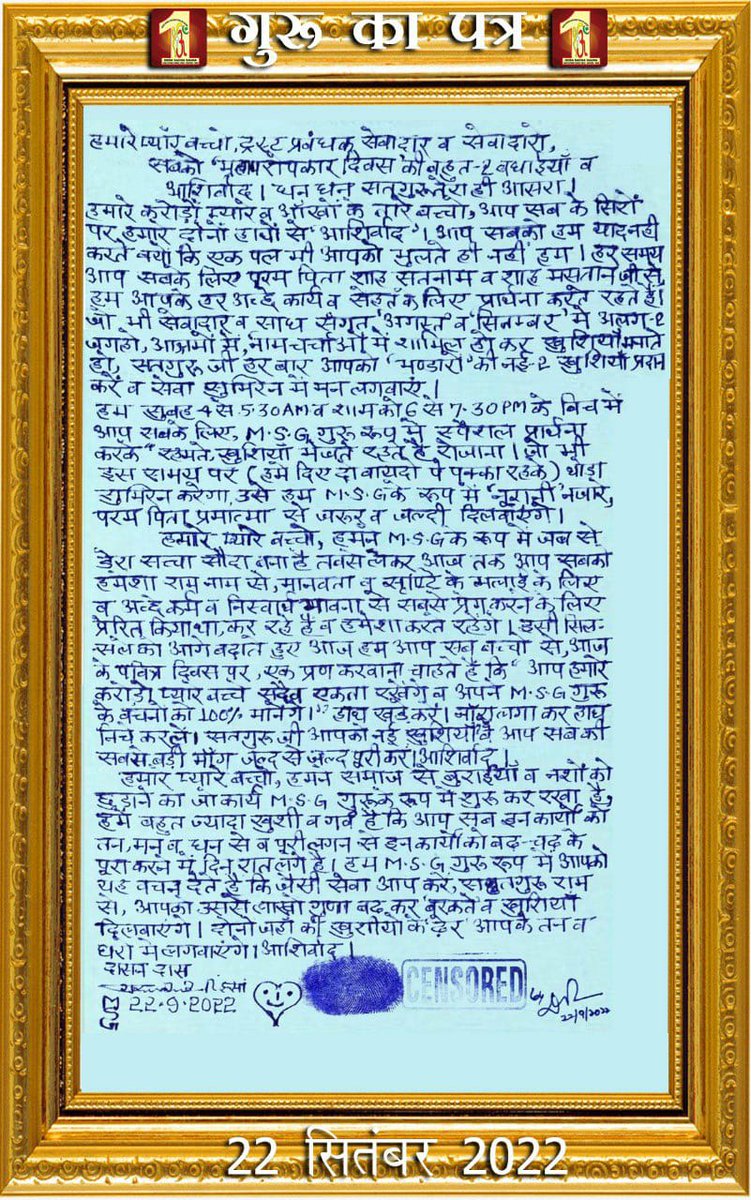 गुरु का पत्र
हमारे प्यारे बच्चो, ट्रस्ट प्रबंधक सेवादार व सेवादारो,
सबको "महापरोपकार दिवस" की बहुत-२ बधाईयाँ व
आशिर्वाद। धन धन सतगुरु तेरा ही आसरा।
हमारे करोड़ों प्यारे व आँखों के तारे बच्चो, आप सब के सिरों
पर हमारे दोनों हाथों से 'आशिर्वाद'। आप सबको हम याद नही
करते क्यों कि एक पल भी आपको भुलते ही नहीं हम। हर समय
आप सबके लिए परम पिता शाह सतनाम व शाह मस्तान जी से,
हम आपके हर अच्छे कार्य व सेहत के लिए प्रार्थना करते रहते हैं।
जो भी सेवादार व साध संगत 'अगस्त' व 'सितम्बर' में अलग-२
जगहों, आश्रमों में, नाम-चर्चाओं में शामिल हो कर खुशियाँ मनाते
हो, सतगुरु जी हर बार आपको 'भण्डारों' की नई-२ खुशियाँ प्रदान
करें व सेवा सुमिरन में मन लगवाएं।
हम सुबह 4 से 5.30AM व शाम को 6 से 7.30PM के बिच में
आप सबके लिए, M.S.G गुरु रूप में स्पैशल प्रार्थना
करके "रहमतें, खुशियाँ भेजते रहते हैं रोजाना। जो भी
इस समय पर (हमें दिए दो वायदों पे पक्का रहके) थोड़ा
सुमिरन करेगा, उसे हम M.S.G के रूप में 'नूरानी' नजारे,
परम पिता प्रमात्मा से जरूर व जल्दी दिलवाएंगे।
हमारे प्यारे बच्चो, हमने M.S.G के रूप में जब से
डेरा सच्चा सौदा बना है तबसे लेकर आज तक आप सबको
हमेशा राम नाम से, मानवता व सृष्टि के भलाई के लिए
व अच्छे कर्म व निस्वार्थ भावना से सबसे प्रेम करने के लिए
प्रेरित किया था, कर रहे हैं व हमेशा करते रहेंगे। इसी सिल-
सिले को आगे बढाते हुए आज हम आप सब बच्चों से, आज
के पवित्र दिवस पर, एक प्रण करवाना चाहते हैं कि "आप हमारे
करोड़ों प्यारे बच्चे सदैव एकता रखेंगे व अपने M.S.G गुरु
के वचनों को 100% मानेंगे।" हाथ खड़े करें। नारा लगा कर हाथ
निचे करलें। सतगुरु जी आपको नई खुशियाँ दें आप सब की
सबसे बड़ी माँग जल्द से जल्द पूरी करें। आशिर्वाद।
हमारे प्यारे बच्चो, हमने समाज से बुराईयाँ व नशों को
छुड़ाने का जो कार्य M.S.G गुरु के रूप में शुरु कर रखा है,
हमें बहुत ज्यादा खुशी व गर्व है कि आप सब इन कार्यों को
तन, मन व धन से व पूरी लगन से इन कार्यों को बढ़-चढ़ के
पूरा करने में दिन रात लगे हैं। हम M.S.G गुरु रूप में आपको
यह वचन देते हैं कि जैसी सेवा आप करें, सतगुरु राम
से, आपको उससे लाखों गुणा बढ़ कर बरकतें व खुशियाँ
दिलवाएंगे। दोनों जहाँ की खुशीयों के ढेर आपके तन व
घरों में लगवाएंगे। आशिर्वाद।
दासन दास
MSG 22.9.2022
CENSORED
22/9/2022
22 सितंबर 2022